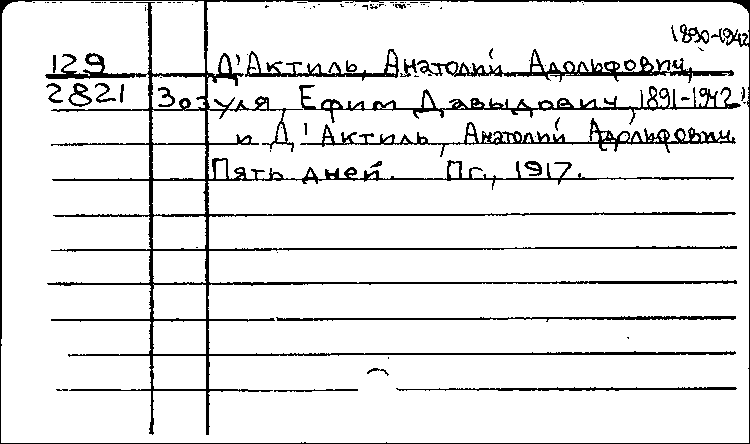 1890-1942
129 Д'Актиль, Анатолий Адольфович,
2821 Зозуля, Ефим Давыдович, 1891-1942
и Д'Актиль, Анатолий Адольфович.
Пять дней. Пг., 1917.